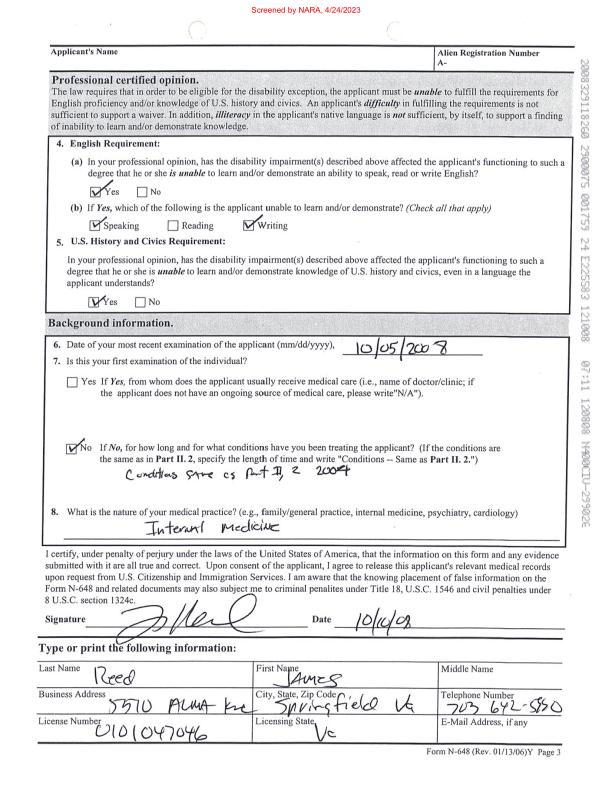 Screened by NARA, 4/24/2023
Applicant's Name
Alien Registration Number
A-
Professional certified opinion.
The law requires that in order to be eligible for the disability exception, the applicant must be unable to fulfill the requirements for
English proficiency and/or knowledge of U.S. history and civics. An applicant's difficulty in fulfilling the requirements is not
sufficient to support a waiver. In addition, illiteracy in the applicant's native language is not sufficient, by itself, to support a finding
of inability to learn and/or demonstrate knowledge.
4. English Requirement:
(a) In your professional opinion, has the disability impairment(s) described above affected the applicant's functioning to such a
degree that he or she is unable to learn and/or demonstrate an ability to speak, read or write English?
Yes No
(b) If Yes, which of the following is the applicant unable to learn and/or demonstrate? (Check all that apply)
Speaking Reading Writing
5. U.S. History and Civics Requirement:
In your professional opinion, has the disability impairment(s) described above affected the applicant's functioning to such a
degree that he or she is unable to learn and/or demonstrate knowledge of U.S. history and civics, even in a language the
applicant understands?
Yes No
Background information.
6. Date of your most recent examination of the applicant (mm/dd/yyyy), 10/05/2008
7. Is this your first examination of the individual?
Yes If Yes, from whom does the applicant usually receive medical care (i.e., name of doctor/clinic; if
the applicant does not have an ongoing source of medical care, please write"N/A").
No If No, for how long and for what conditions have you been treating the applicant? (If the conditions are
the same as in Part II. 2, specify the length of time and write "Conditions -- Same as Part II. 2.")
Conditions same as Part II, 2 2004
8. What is the nature of your medical practice? (e.g., family/general practice, internal medicine, psychiatry, cardiology)
Internal Medicine
I certify, under penalty of perjury under the laws of the United States of America, that the information on this form and any evidence
submitted with it are all true and correct. Upon consent of the applicant, I agree to release this applicant's relevant medical records
upon request from U.S. Citizenship and Immigration Services. I am aware that the knowing placement of false information on the
Form N-648 and related documents may also subject me to criminal penalites under Title 18, U.S.C. 1546 and civil penalties under
8 U.S.C. section 1324c.
Signature Date 10/10/08
Type or print the following information:
Last Name Reed
First Name JAMES
Middle Name
Business Address 5510 ALMA
City, State, Zip Code Springfield Va
Telephone Number 703 642-
License Number 0101047046
Licensing State Va
E-Mail Address, if any
Form N-648 (Rev. 01/13/06)Y Page 3
2008329118260 2900075 001759 24 E225583 121008 07:11 120808 N400CIU-29902E